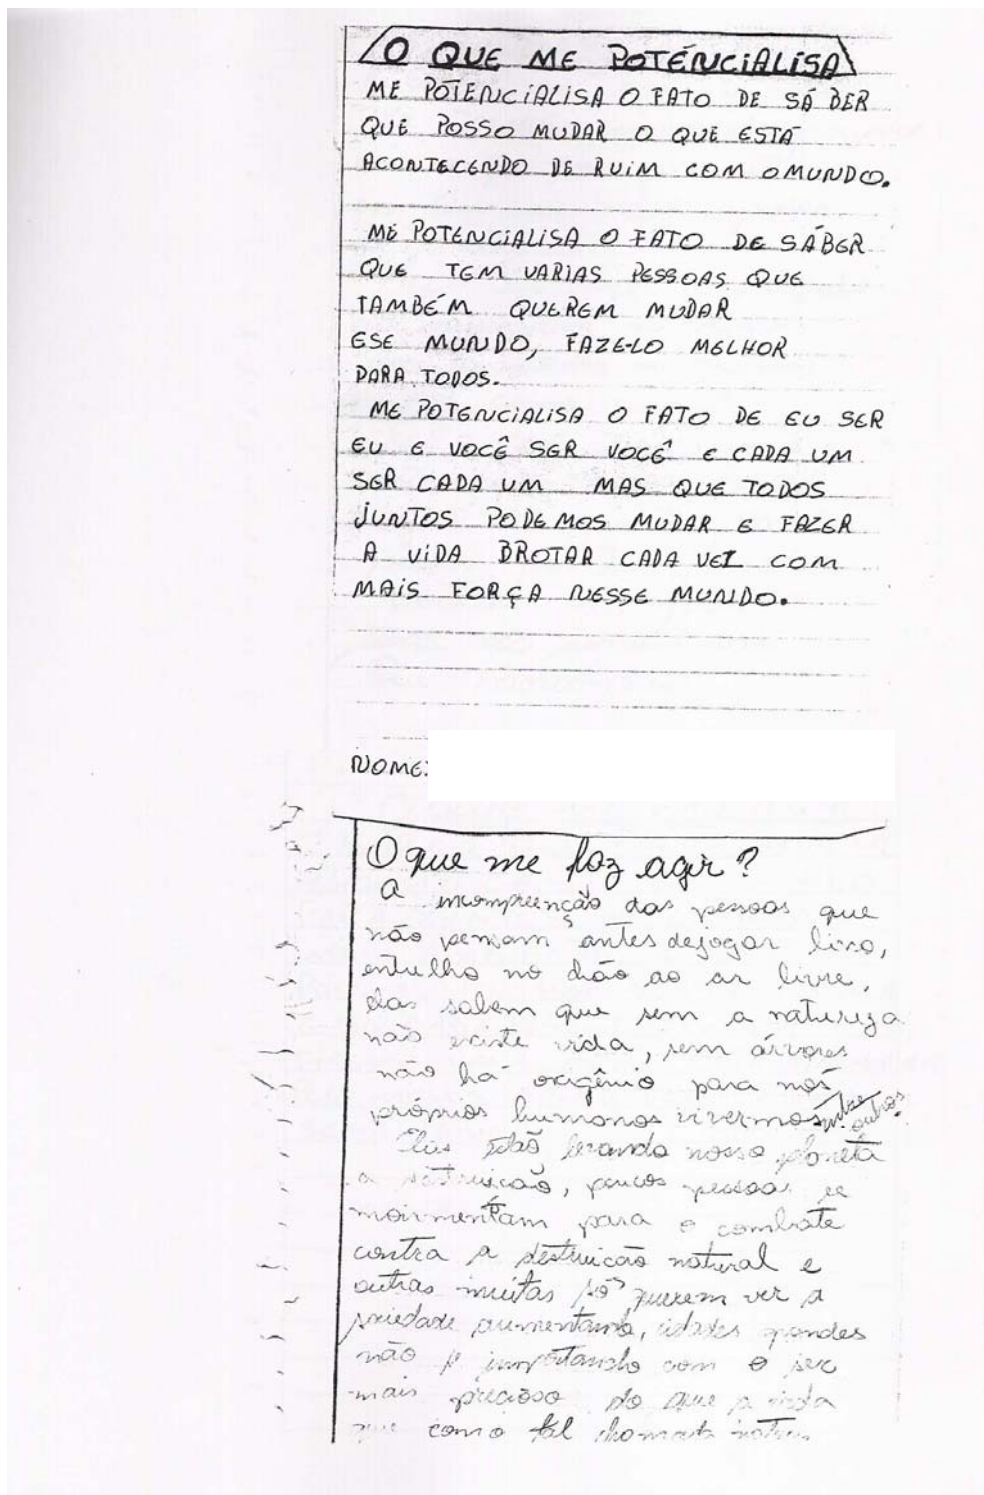 O QUE ME POTÉNCIALISA
ME POTENCIALISA O FATO DE SÁBER
QUE POSSO MUDAR O QUE ESTÁ
ACONTECENDO DE RUIM COM O MUNDO.
ME POTENCIALISA O FATO DE SÁBER
QUE TEM VARIAS PESSOAS QUE
TAMBÉM QUEREM MUDAR
ESE MUNDO, FAZE-LO MELHOR
PARA TODOS.
ME POTENCIALISA O FATO DE EU SER
EU E VOCÊ SER VOCÊ E CADA UM
SER CADA UM MAS QUE TODOS
JUNTOS PODEMOS MUDAR E FAZER
A VIDA BROTAR CADA VEZ COM
MAIS FORÇA NESSE MUNDO.
NOME:
O que me faz agir?
A incompreenção das pessoas que
não pensam antes de jogar lixo,
entulho no chão ao ar livre,
elas sabem que sem a natureza
não existe vida, sem árvores
não há oxigênio para nós
próprios humanos vivermos entre outros.
Elas estão levando nosso planeta
a destruicão, poucos pessoas se
moivmentam para o combate
contra a destruicão natural e
outras muitas só querem ver a
sociedade aumentando, cidades grandes
não se importando com o ser
mais precioso do que a vida
que como tal chomada